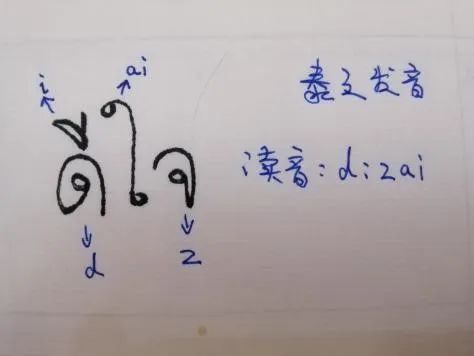 i ai 泰文发音
ดีใจ 读音：d:zai
d z